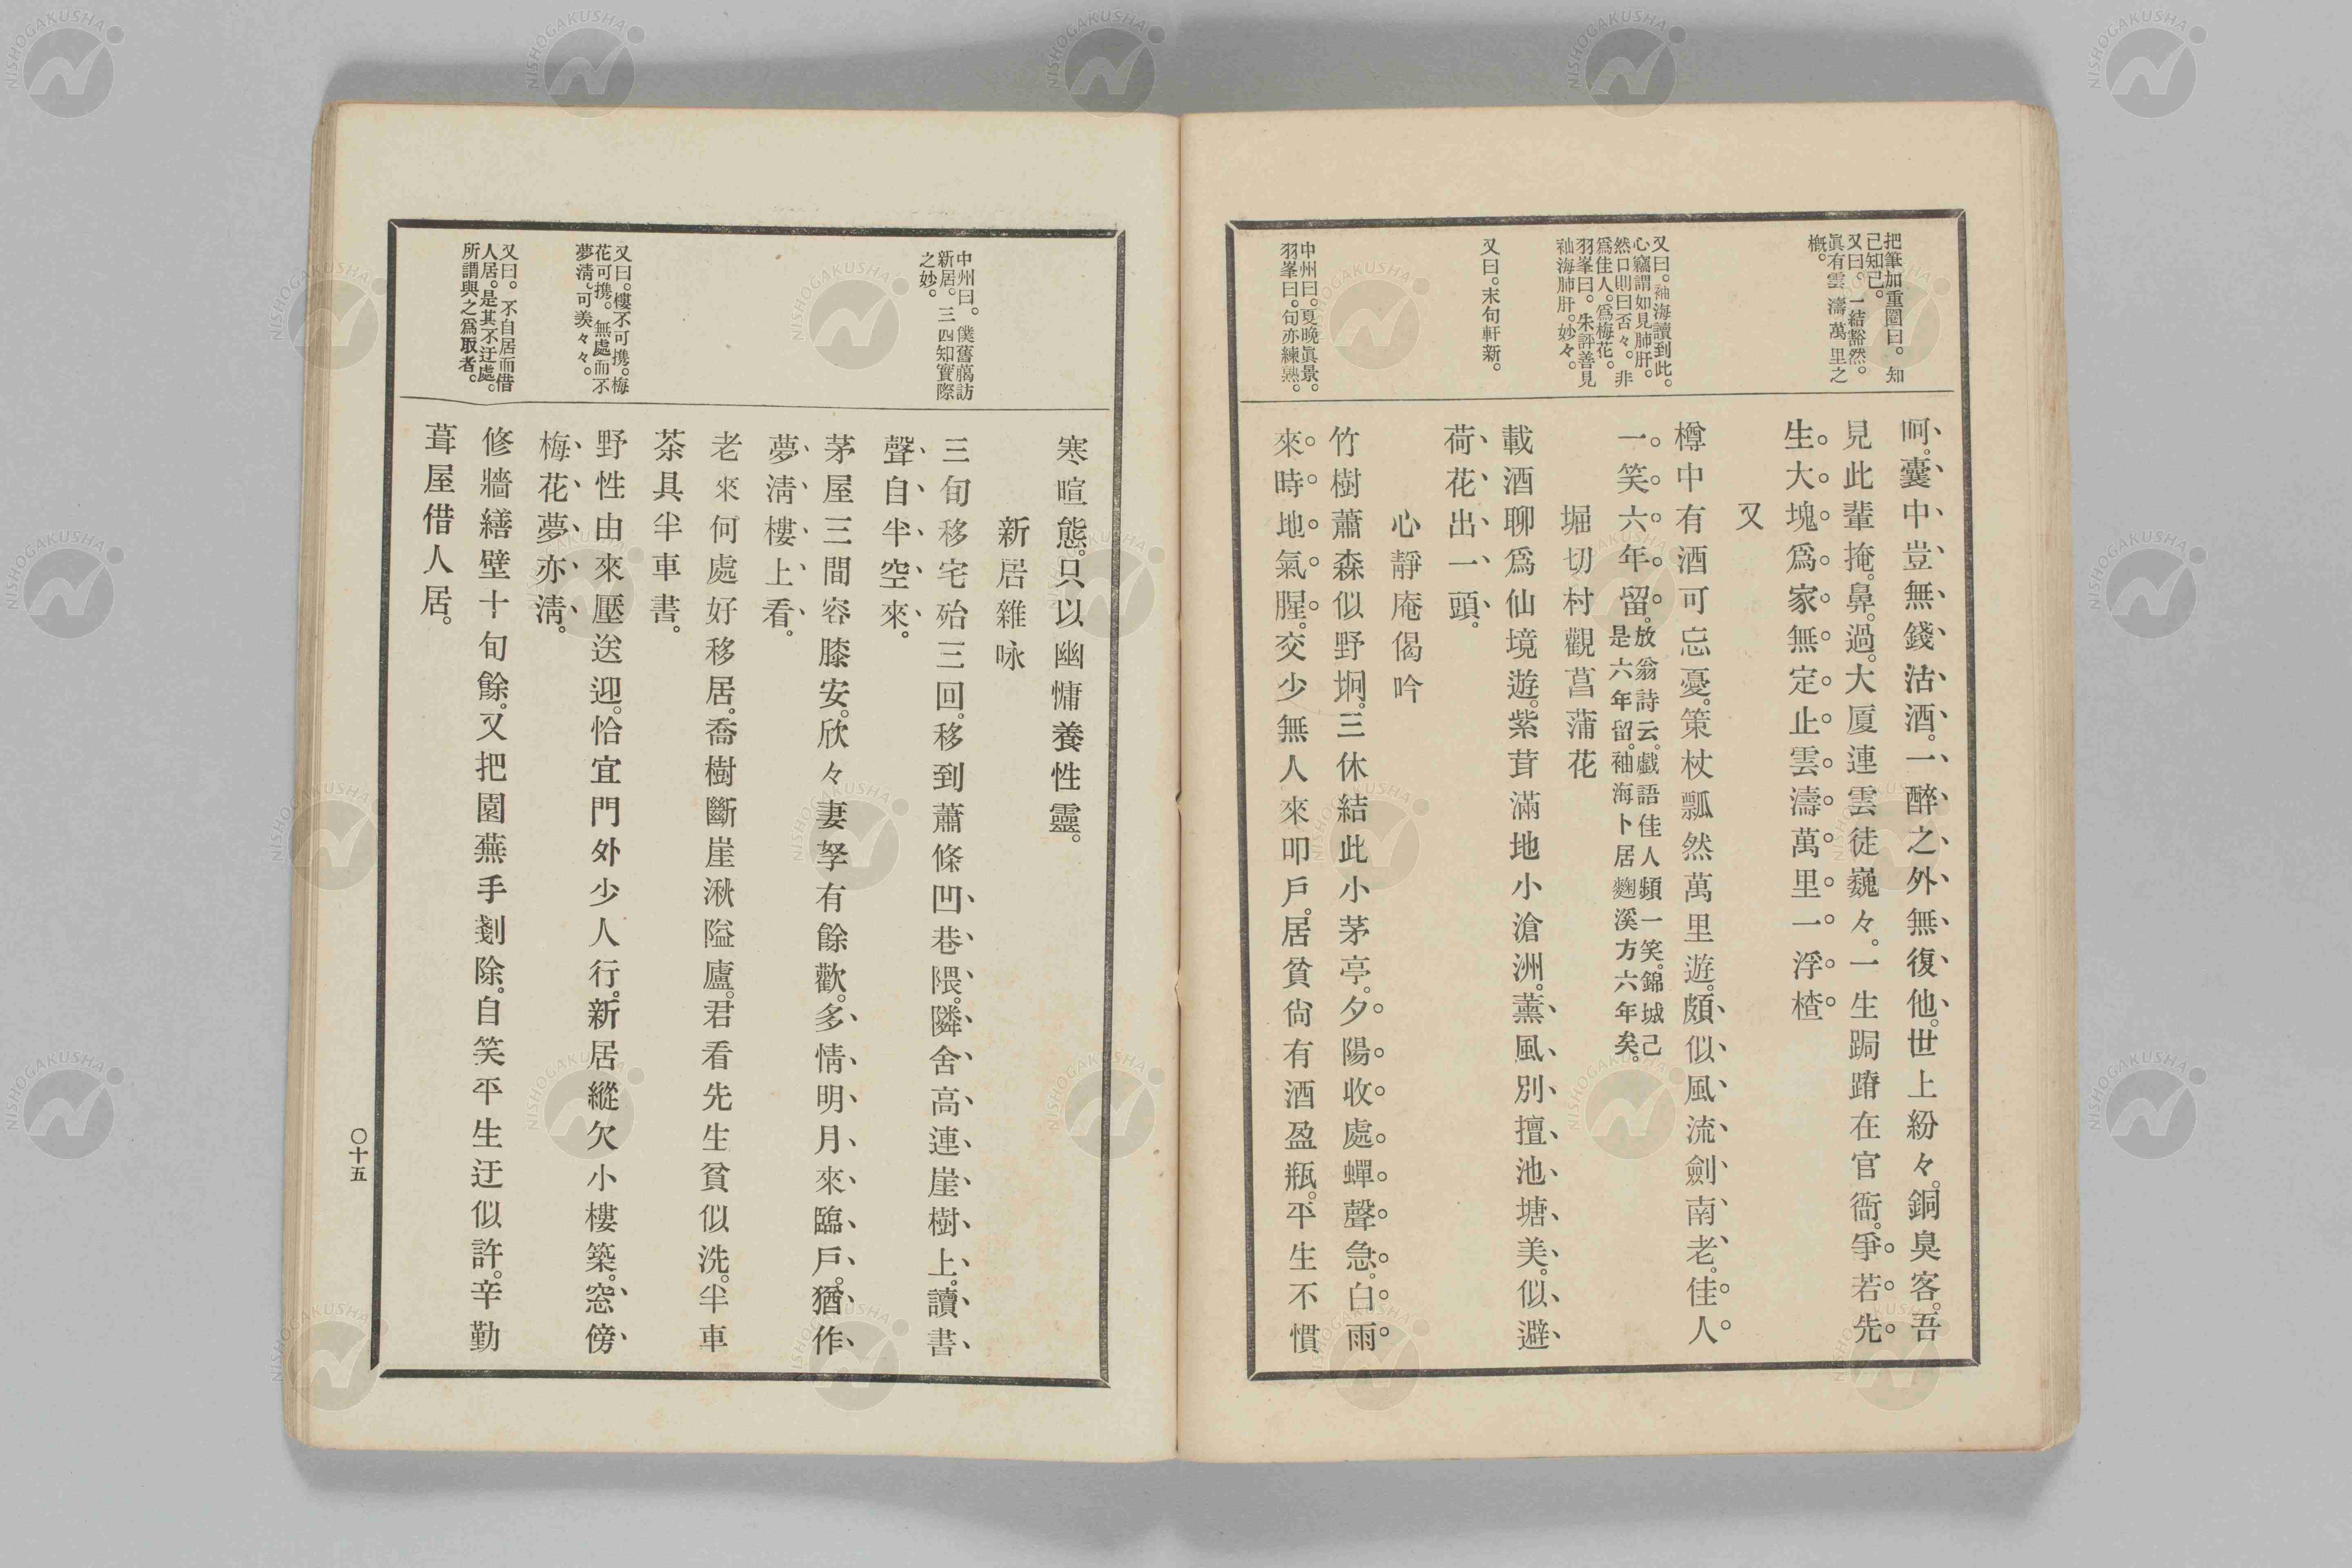 把筆加重圈曰。知
己知己。
又曰。一結豁然。
眞有雲濤萬里之
概。
又曰。袖海讀到此。
心竊謂如見肺肝。
然口則曰否々。非
爲佳人。爲梅花。
羽峯曰。朱評善見
袖海肺肝。妙々。
又曰。末句軒新。
中州曰。夏晩眞景。
羽峯曰。句亦練熟。
呵。囊中豈無錢沽酒。一醉之外無復他。世上紛々。銅臭客。吾
見此輩掩。鼻。過。大厦連雲徒巍々。一生跼蹐在官衙。爭若先
生大塊爲家無定止雲濤萬里一浮楂
又
樽中有酒可忘憂。策杖瓢然萬里遊。頗似風流劍南老。佳人
一笑六年留。放翁詩云。戲語佳人頻一笑。錦城己
是六年留。袖海卜居麴溪方六年矣。
堀切村觀菖蒲花
載酒聊爲仙境遊。紫茸滿地小滄洲。薰風別擅池塘美。似避
荷花出一頭。
心靜庵偈吟
竹樹蕭森似野坰。三休結此小茅亭。夕陽收處蟬聲急。白雨
來時地氣腥。交少無人來叩戶。居貧尙有酒盈瓶。平生不慣
中州曰。僕舊蓐訪
新居。三四知實際
之妙。
又曰。樓不可携。梅
花可携。無處而不
夢淸。可羨々々。
又曰。不自居而借
人居。是其不迂處。
所謂與之爲取者。
寒暄態。只以幽慵養性靈。
新居雜咏
三旬移宅殆三回。移到蕭條凹巷隈。隣舍高連崖樹上。讀書
聲自半空來。
茅屋三間容膝安。欣々妻孥有餘歡。多情明月來臨戶。猶作
夢淸樓上看。
老來何處好移居。喬樹斷崖湫隘廬。君看先生貧似洗。半車
茶具半車書。
野性由來壓送迎。恰宜門外少人行。新居縱欠小樓築。窓傍
梅花夢亦淸。
修牆繕壁十旬餘。又把園蕪手剗除。自笑平生迂似許。辛勤
葺屋借人居。
〇十五